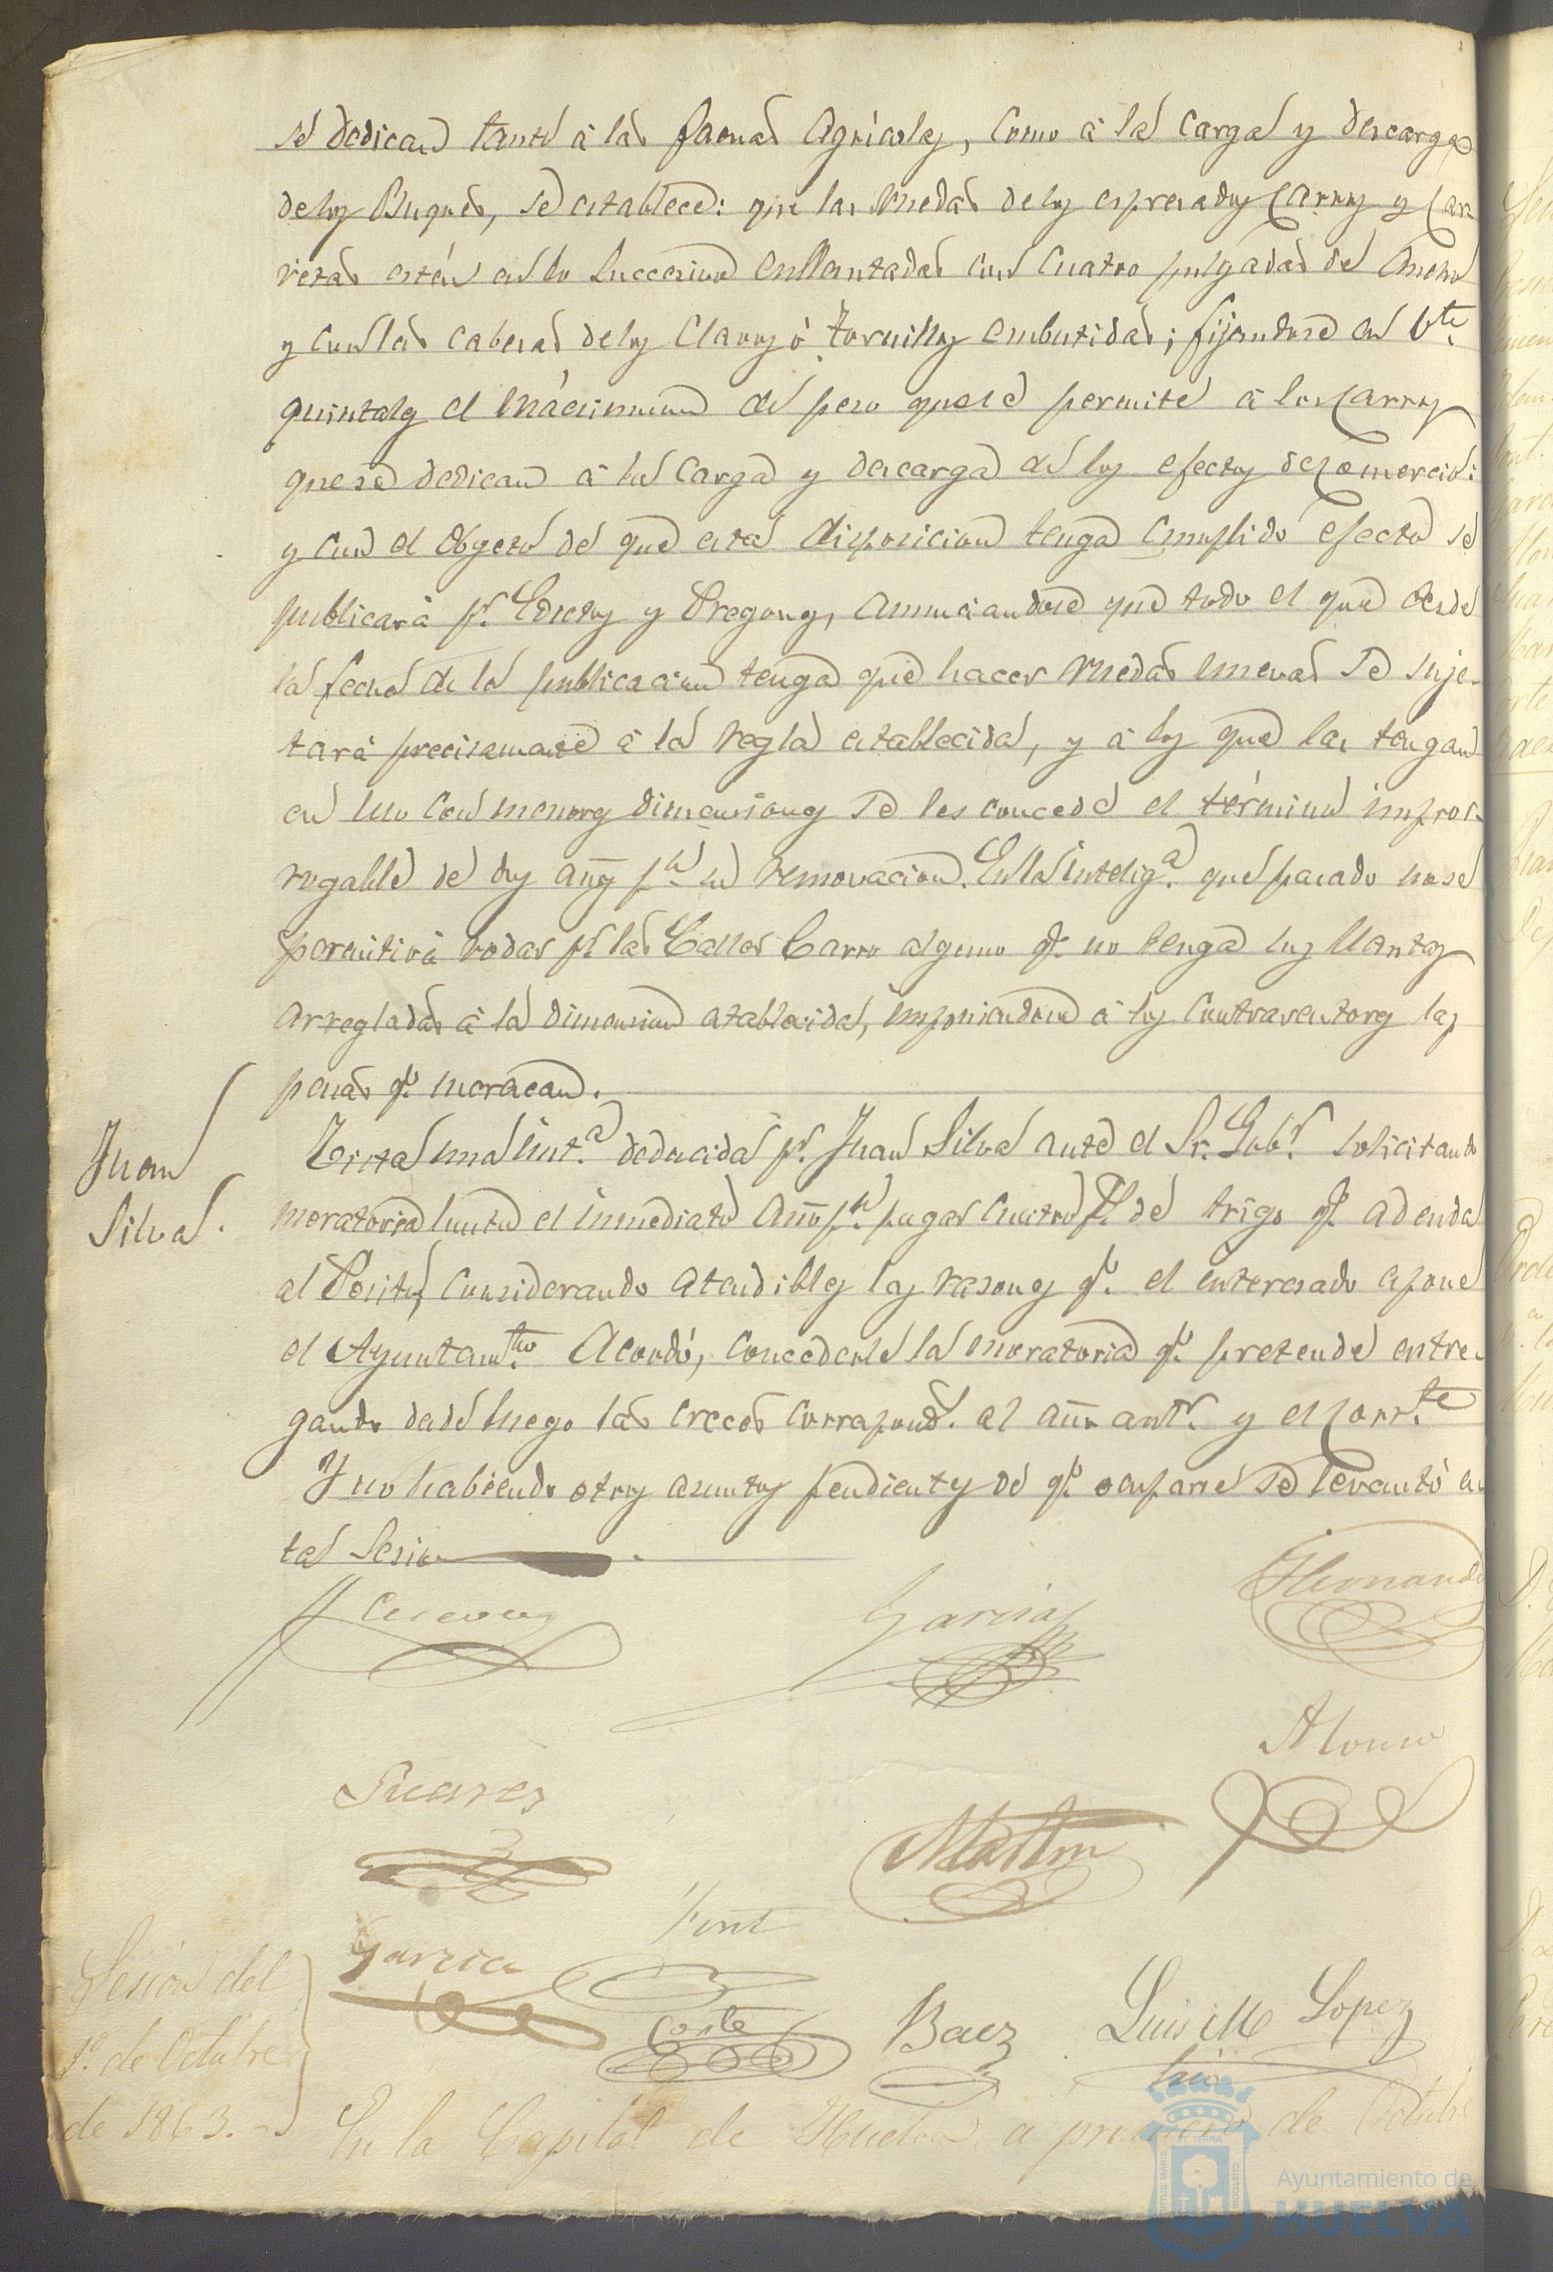 se dedican tanto á las faenas Agricolas, como á la carga y descarga
de los Buques, se establece: que las ruedas de los espresados Carros y Car-
retas estén en lo succesivo enllantadas con cuatro pulgadas de Ancho
y con las cabezas de los Clavos ó tornillos embutidas; fijandose en vte.
quintales el máximum de peso que se permite á los Carros
que se dedican á la Carga y descarga de los efectos de Comercio:
y con el Obgeto de que esta disposicion tenga Cumplido efecto se
publicará pr. Edictos y Pregones, Anunciandose que todo el que desde
la fecha de la publicacion tenga que hacer ruedas nuevas se suje-
tará precisamente á la regla establecida, y á los que las tengan
en uso con menores dimensiones se les concede el término impror-
rogable de dos años pa. su renovacion. En la inteliga. que pasado no se
permitirá rodar pr. las Calles Carro alguno qe. no tenga las llantas
arregladas á la dimension establecida, imponiendose á los Contraventores las
penas qe. merezcan.
Juan
Silva.
Vista una insta. deducida pr. Juan Silva ante el Sr. Gobr. solicitando
moratoria hasta el inmediato Año pa. pagar cuatro fs. de trigo qe. adeuda
al Posito, Considerando atendibles las rasones qe. el interesado espone
el Ayuntamto. Acordó, concederle la moratoria qe. pretende entre-
gando desde luego las creces correspond. al año antr. y el Corrte.
Y no habiendo otros asuntos pendientes de qe. ocuparse se levantó es-
ta Sesion.
Garcia
Hernandez
Suarez
Alonso
Martin
Garcia
Font
Corte
Baez
Luis M Lopez
Srio
Sesion del
1º. de Octubre
de 1863.
En la Capital de Huelva a primero de Octubre
Ayuntamiento de
HUELVA